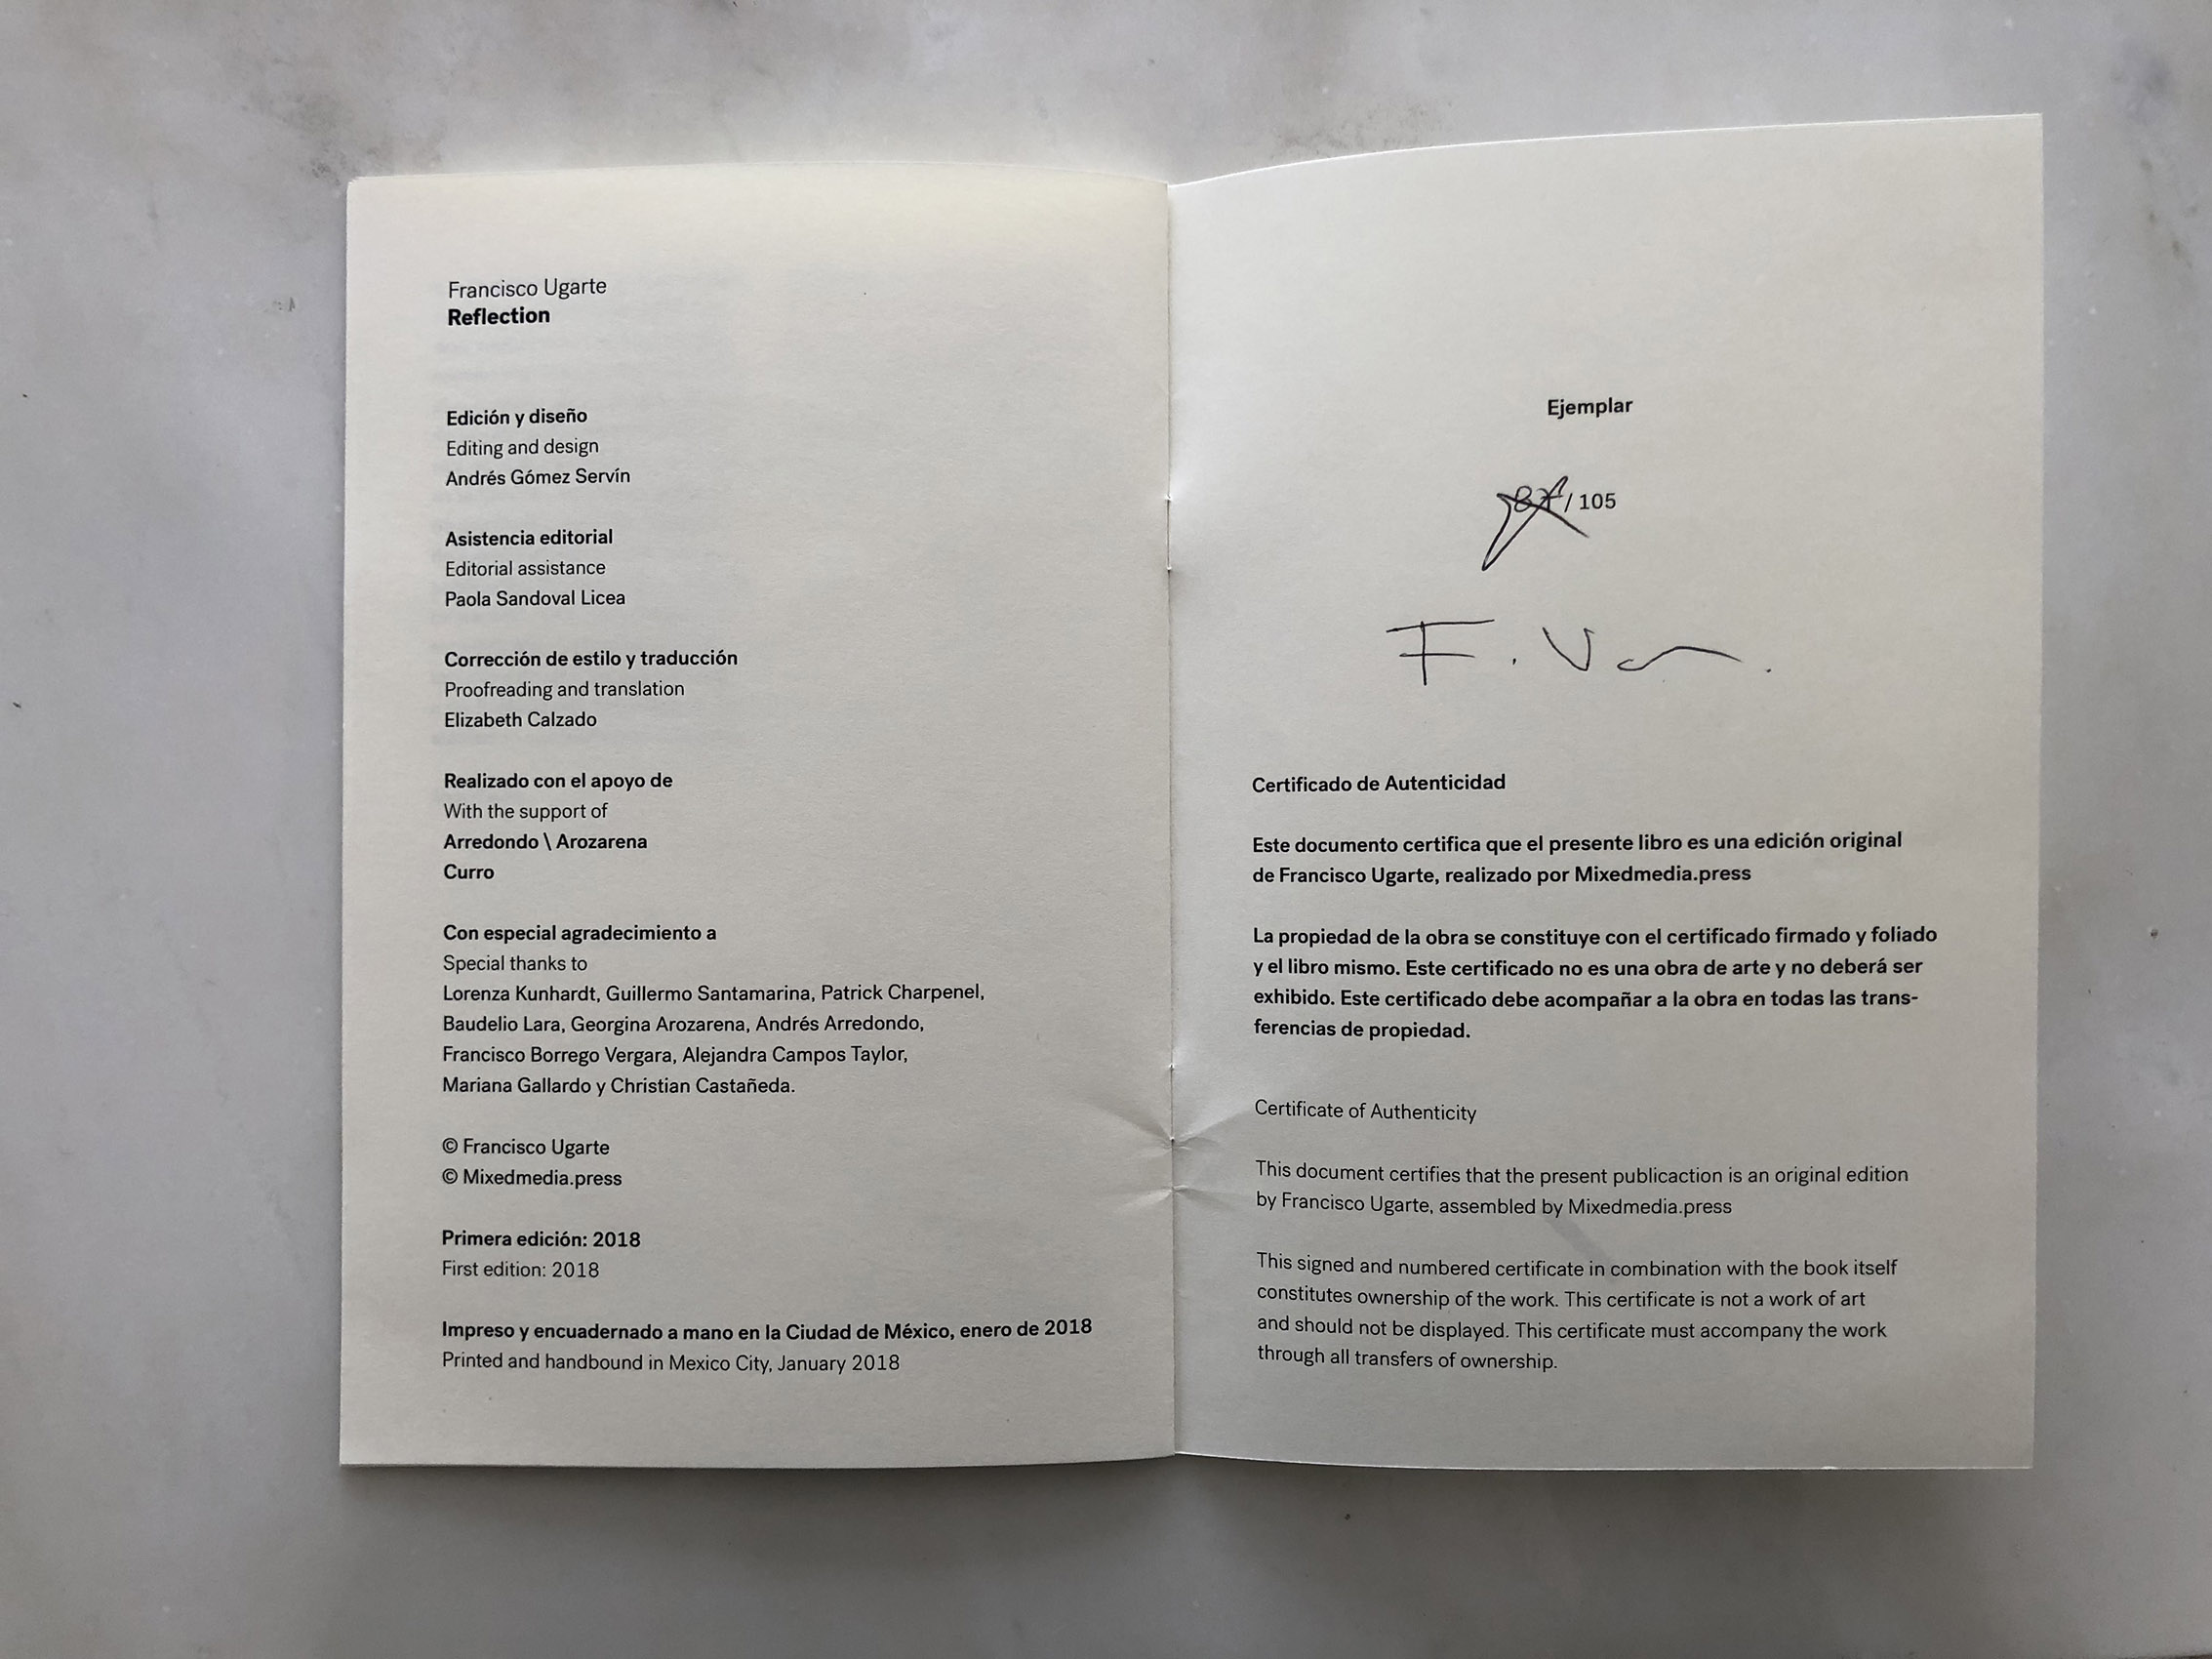 Francisco Ugarte
Reflection
Edición y diseño
Editing and design
Andrés Gómez Servín
Asistencia editorial
Editorial assistance
Paola Sandoval Licea
Corrección de estilo y traducción
Proofreading and translation
Elizabeth Calzado
Realizado con el apoyo de
With the support of
Arredondo \ Arozarena
Curro
Con especial agradecimiento a
Special thanks to
Lorenza Kunhardt, Guillermo Santamarina, Patrick Charpenel,
Baudelio Lara, Georgina Arozarena, Andrés Arredondo,
Francisco Borrego Vergara, Alejandra Campos Taylor,
Mariana Gallardo y Christian Castañeda.
© Francisco Ugarte
© Mixedmedia.press
Primera edición: 2018
First edition: 2018
Impreso y encuadernado a mano en la Ciudad de México, enero de 2018
Printed and handbound in Mexico City, January 2018
Ejemplar
/ 105
F. U
Certificado de Autenticidad
Este documento certifica que el presente libro es una edición original
de Francisco Ugarte, realizado por Mixedmedia.press
La propiedad de la obra se constituye con el certificado firmado y foliado
y el libro mismo. Este certificado no es una obra de arte y no deberá ser
exhibido. Este certificado debe acompañar a la obra en todas las trans-
ferencias de propiedad.
Certificate of Authenticity
This document certifies that the present publicaction is an original edition
by Francisco Ugarte, assembled by Mixedmedia.press
This signed and numbered certificate in combination with the book itself
constitutes ownership of the work. This certificate is not a work of art
and should not be displayed. This certificate must accompany the work
through all transfers of ownership.